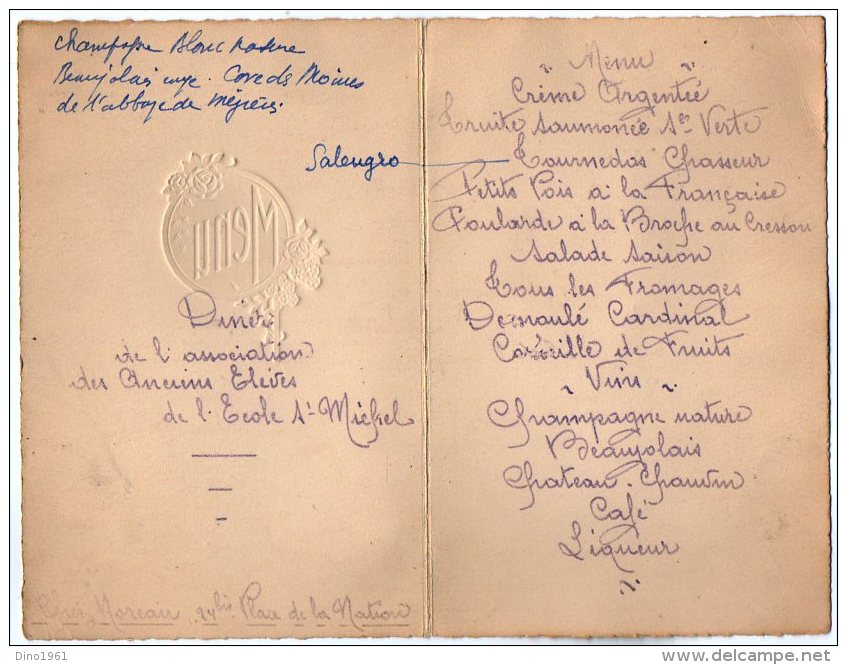 Champagne Blanc nature
Beaujolais rouge. Cave des Moines
de l'abbaye de Mégères
Salengro
Menu
Diner
de l'association
des Anciens Elèves
de l'Ecole St Michel
Chez Moreau 24bis Place de la Nation
Menu
Crème Argentée
Truite saumonée Sce Verte
Tournedos Chasseur
Petits Pois à la Française
Poularde à la Broche au Cresson
Salade saison
Tous les Fromages
Démoulé Cardinal
Corbeille de Fruits
Vins
Champagne nature
Beaujolais
Chateau-Chauvin
Café
Liqueur
Dino1961
www.delcampe.net